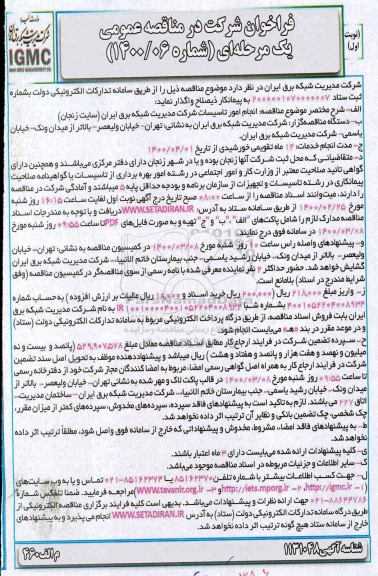 (نوبت اول)
فراخوان شرکت در مناقصه عمومی
یک مرحله‌ای (شماره ۱۴۰۰/۰۶)
شرکت مدیریت شبکه برق ایران
IGMC
IRAN GRID MANAGEMENT CO.
شرکت مدیریت شبکه برق ایران در نظر دارد موضوع مناقصه ذیل را از طریق سامانه تدارکات الکترونیکی دولت بشماره
ثبت ستاد ۲۰۰۰۰۰۱۰۷۰۰۰۰۰۰۷ به پیمانکار ذیصلاح واگذار نماید:
الف- شرح مختصر موضوع مناقصه: انجام امور تاسیسات شرکت مدیریت شبکه برق ایران (سایت زنجان)
ب- دستگاه مناقصه‌گزار: شرکت مدیریت شبکه برق ایران به نشانی: تهران- خیابان ولیعصر- بالاتر از میدان ونک- خیابان
یاسمی- شرکت مدیریت شبکه برق ایران.
ج- مدت انجام خدمات: ۱۲ ماه تقویمی خورشیدی از تاریخ ۱۴۰۰/۰۴/۰۱
د- متقاضیانی که محل ثبت شرکت آنها زنجان بوده و یا در شهر زنجان دارای دفتر مرکزی می‌باشند و همچنین دارای
گواهی تائید صلاحیت معتبر از وزارت کار و امور اجتماعی در رشته امور بهره برداری از تاسیسات یا گواهینامه صلاحیت
پیمانکاری در رشته تاسیسات و تجهیزات از سازمان برنامه و بودجه حداقل پایه ۵ میباشند و آمادگی شرکت در مناقصه
را دارند، میتوانند اسناد مناقصه را از ساعت ۰۸:۰۰ صبح تاریخ درج آگهی نوبت اول لغایت ساعت ۱۶:۱۵ روز شنبه
مورخ ۱۴۰۰/۰۲/۲۵ از طریق سامانه ستاد به آدرس: WWW.SETADIRAN.IR دریافت و با توجه به مندرجات اسناد
مناقصه مدارک لازم را شامل پاکت‌های "الف"، "ب" و "ج" تهیه و به صورت فایل‌های PDF تا ساعت ۰۹:۵۵ روز شنبه مورخ
۱۴۰۰/۰۳/۰۸ در سامانه فوق درج نمایند.
و- پیشنهادهای واصله راس ساعت ۱۰ روز شنبه مورخ ۱۴۰۰/۰۳/۰۸ در کمیسیون مناقصه به نشانی: تهران- خیابان
ولیعصر- بالاتر از میدان ونک- خیابان رشید یاسمی- جنب بیمارستان خاتم الانبیا- شرکت مدیریت شبکه برق ایران
گشایش خواهد شد. حضور حداکثر ۲ نفر نماینده معرفی شده با نامه رسمی از سوی مناقصه‌گر در کمیسیون مناقصه (وفق
شرایط مندرج در اسناد) بلامانع است.
ز- واریز مبلغ ۲۱۸,۰۰۰ ریال (۲۰۰,۰۰۰ ریال خرید اسناد و ۱۸,۰۰۰ ریال مالیات بر ارزش افزوده) به حساب شماره
ایران بابت فروش اسناد مناقصه، از طریق درگاه پرداخت الکترونیکی مربوط به سامانه تدارکات الکترونیکی دولت (ستاد)
و در موعد مقرر در بند «ه» می‌بایست انجام شود.
ح- سپرده تضمین شرکت در فرایند ارجاع کار مطابق اسناد مناقصه معادل مبلغ ۵۲۹,۹۰۷,۵۷۸ (پانصد و بیست و نه
میلیون و نهصد و هفت هزار و پانصد و هفتاد و هشت) ریال میباشد و پیشنهاددهنده موظف به تحویل اصل سند تضمین
شرکت در فرایند ارجاع کار به همراه اصل گواهی رسمی امضا، مربوط به امضا کنندگان مجاز شرکت خود از دفترخانه رسمی
تا ساعت ۰۹:۵۵ روز شنبه مورخ ۱۴۰۰/۰۳/۰۸ در قالب پاکت لاک و مهر شده به نشانی تهران- خیابان ولیعصر- بالاتر از
میدان ونک- خیابان رشید یاسمی- جنب بیمارستان خاتم الانبیا- شرکت مدیریت شبکه برق ایران- ساختمان مدیریت-
اتاق ۴۲۷ می باشند. لازم به تاکید است به پیشنهادهای فاقد سپرده، سپرده‌های مخدوش، سپرده‌های کمتر از میزان مقرر،
چک شخصی، چک تضمین بانکی و نظایر آن ترتیب اثر داده نخواهد شد.
ط- به پیشنهادهای فاقد امضا، مشروط، مخدوش و پیشنهاداتی که خارج از سامانه فوق واصل شود، مطلقاً ترتیب اثر داده
نخواهد شد.
ی- کلیه پیشنهادات ارائه شده می‌بایست دارای ۳ ماه اعتبار باشند.
ک- سایر اطلاعات و جزئیات مربوطه در اسناد مناقصه موجود می‌باشد.
ل- جهت کسب اطلاعات بیشتر با شماره تلفن ۸۵۱۶۲۳۷۰ و ۰۲۱-۸۵۱۶۲۳۷۴ تماس و یا به وب سایت‌های
(۱- http://igmc.ir، ۲- http://iets.mporg.ir و ۳- www.tavanir.org.ir) مراجعه فرمایید. ضمنا تلفکس شماره
۰۲۱-۸۸۶۴۴۷۸۶ جهت ارائه نظرات و پیشنهادات می‌باشد. بدیهی است کلیه فرایند برگزاری مناقصه الکترونیکی از
طریق درگاه سامانه تدارکات الکترونیکی دولت (ستاد) به آدرس WWW.SETADIRAN.IR انجام می‌پذیرد و به پیشنهادهای
خارج از سامانه ستاد هیچ گونه ترتیب اثر داده نخواهد شد.
شناسه آگهی ۱۱۳۱۰۴۸
م الف ۴۶۰